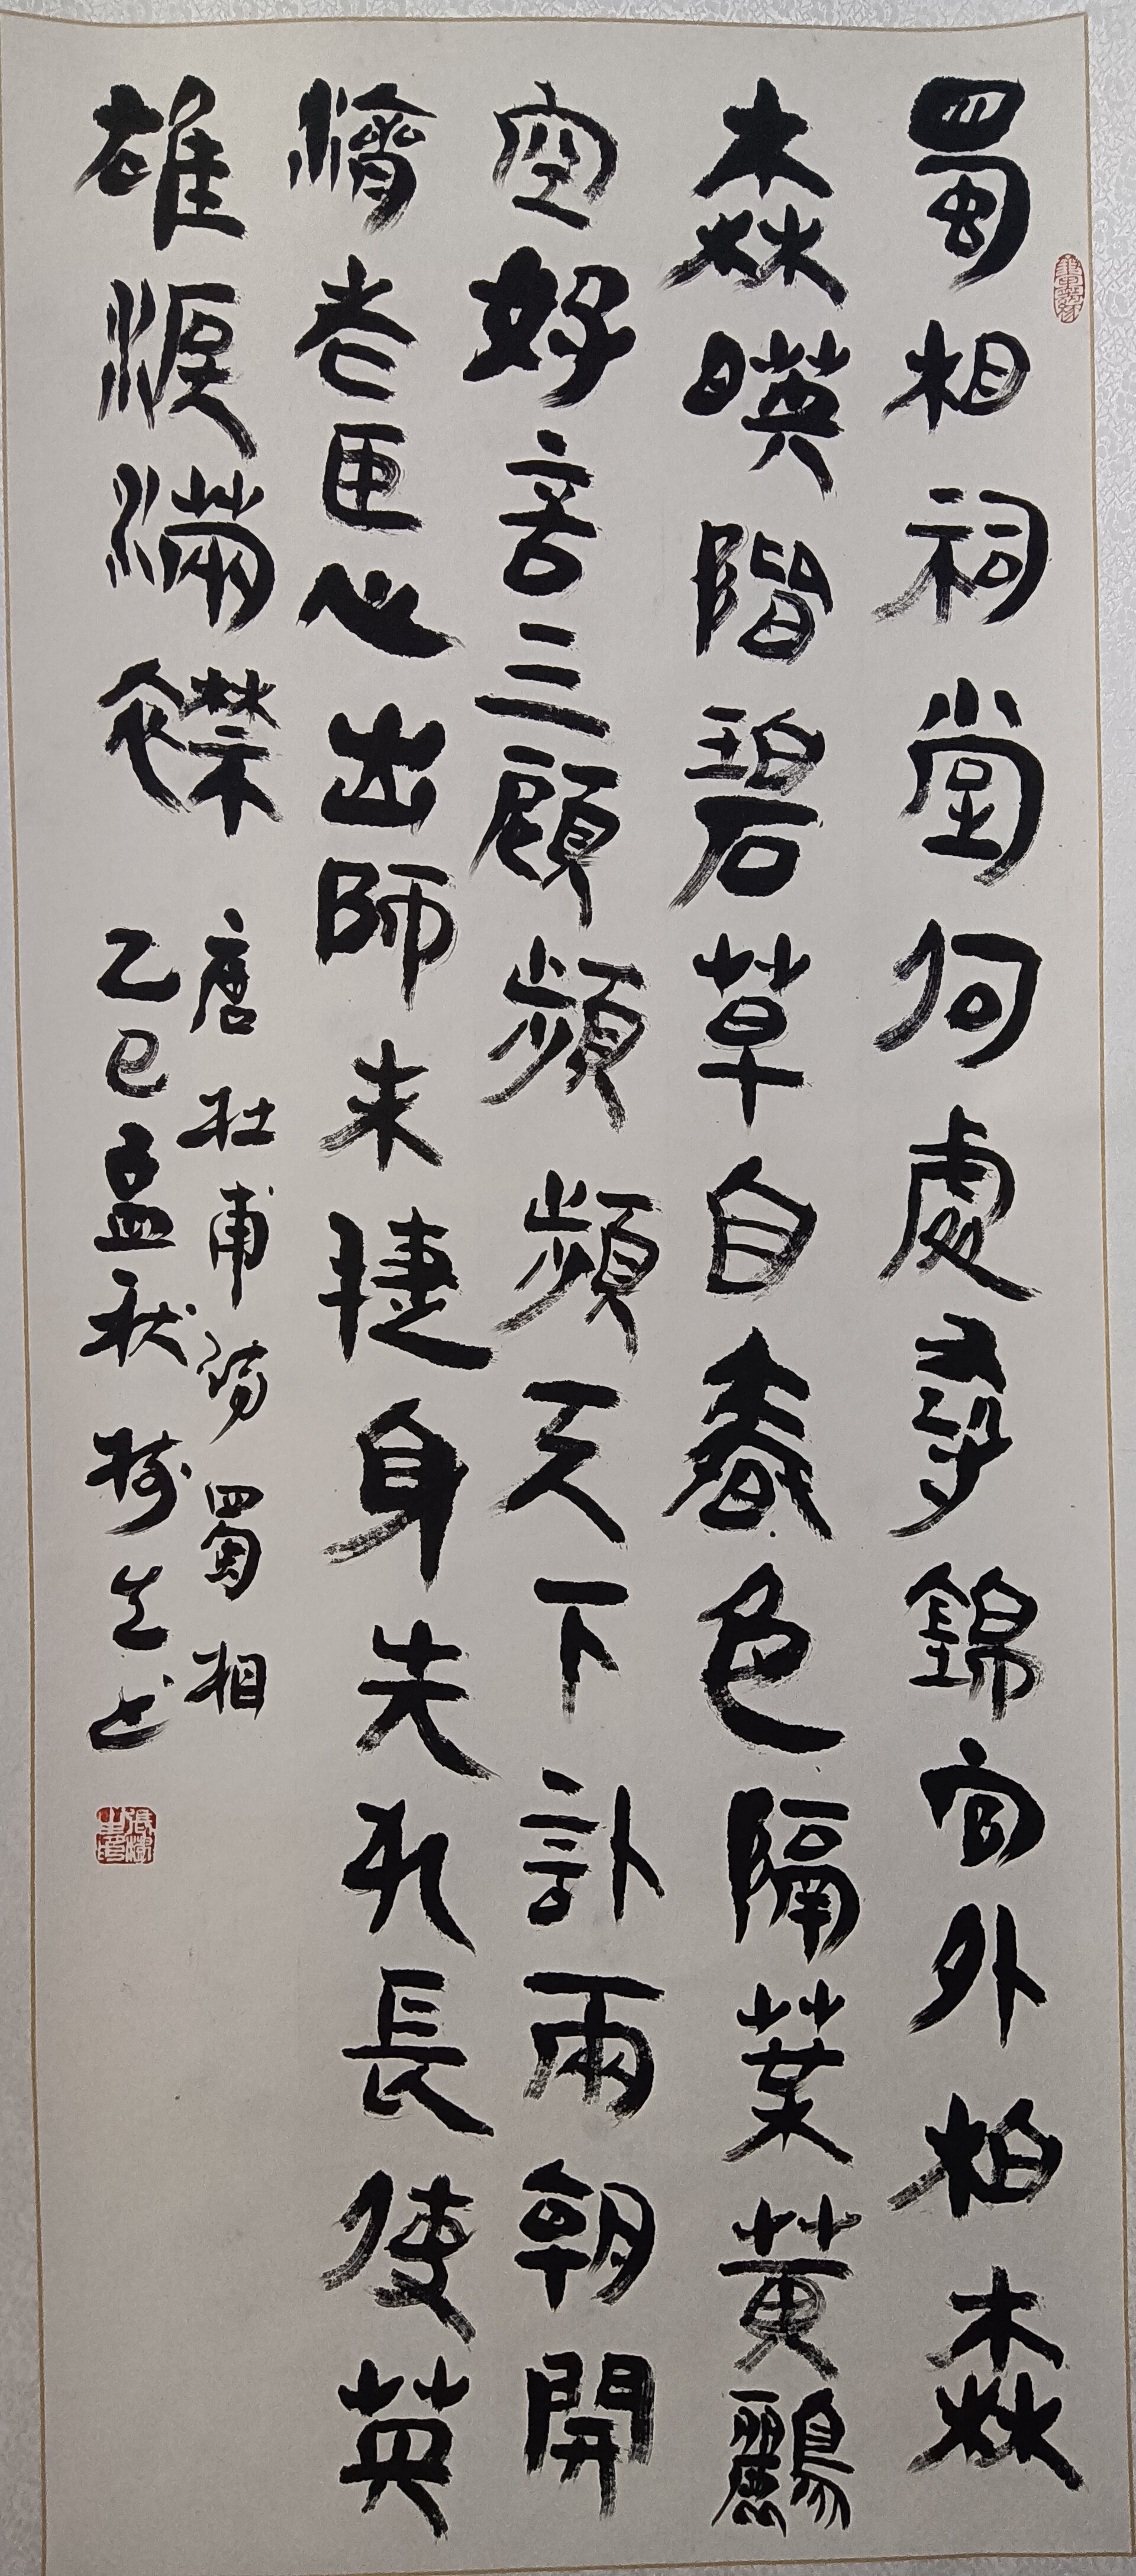 蜀相祠堂何處尋錦官外柏森
森暎階碧草自春色隔葉黃鸝
空好音三顧頻頻天下計兩朝開
濟老臣心出師未捷身先死長使英
雄淚滿襟
唐杜甫詩蜀相
乙巳孟秋樹生書
張樹生印